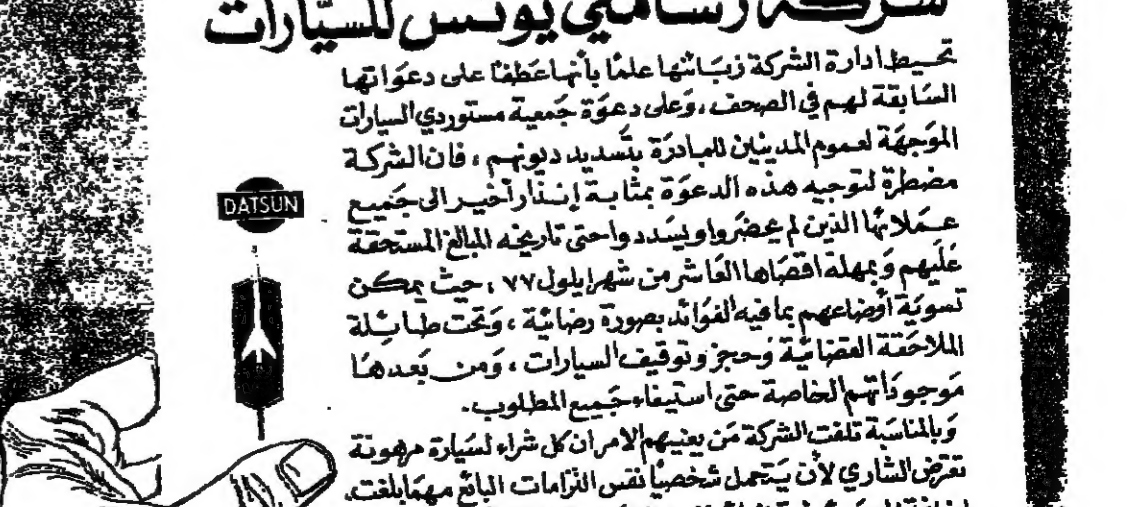 شركة رسامني يونس للسيارات
تحيط ادارة الشركة زبائنها علمًا بأنها عَطفًا على دعوَاتها
السَابقة لهم في الصحف ، وَعلى دعوَة جَمعية مستوردي السيارات
الموَجهَة لعموم المدينين للمبادرَة بتَسديد ديونهم ، فان الشركة
مضطرة لتوجيه هذه الدعوَة بمثابة إنذار أخير الى جَميع
عملائها الذين لم يحضروا ويسددوا حتى تاريخه المبالغ المستحقة
عَلَيهم وَبمهلة اقصَاها العَاشر من شهر ايلول ٧٧ ، حيث يمكن
تسويَة أوضاعهم بما فيه الفوَائد بصورة رضائية ، وَتحت طائلة
الملاحَقة القضائية وَحجز وتوقيف السيارات ، وَمن بَعدهَا
مَوجودَاتهم الخاصة حتى استيفاء جَميع المطلوب .
وَبالمناسَبة تلفت الشركة مَن يعنيهم الامر ان كل شراء لسَيارة مرهونة
تعَرّض الشاري لأن يَتحمل شخصيًا نفس التزامات البائع مهمَا بلغت.
DATSUN